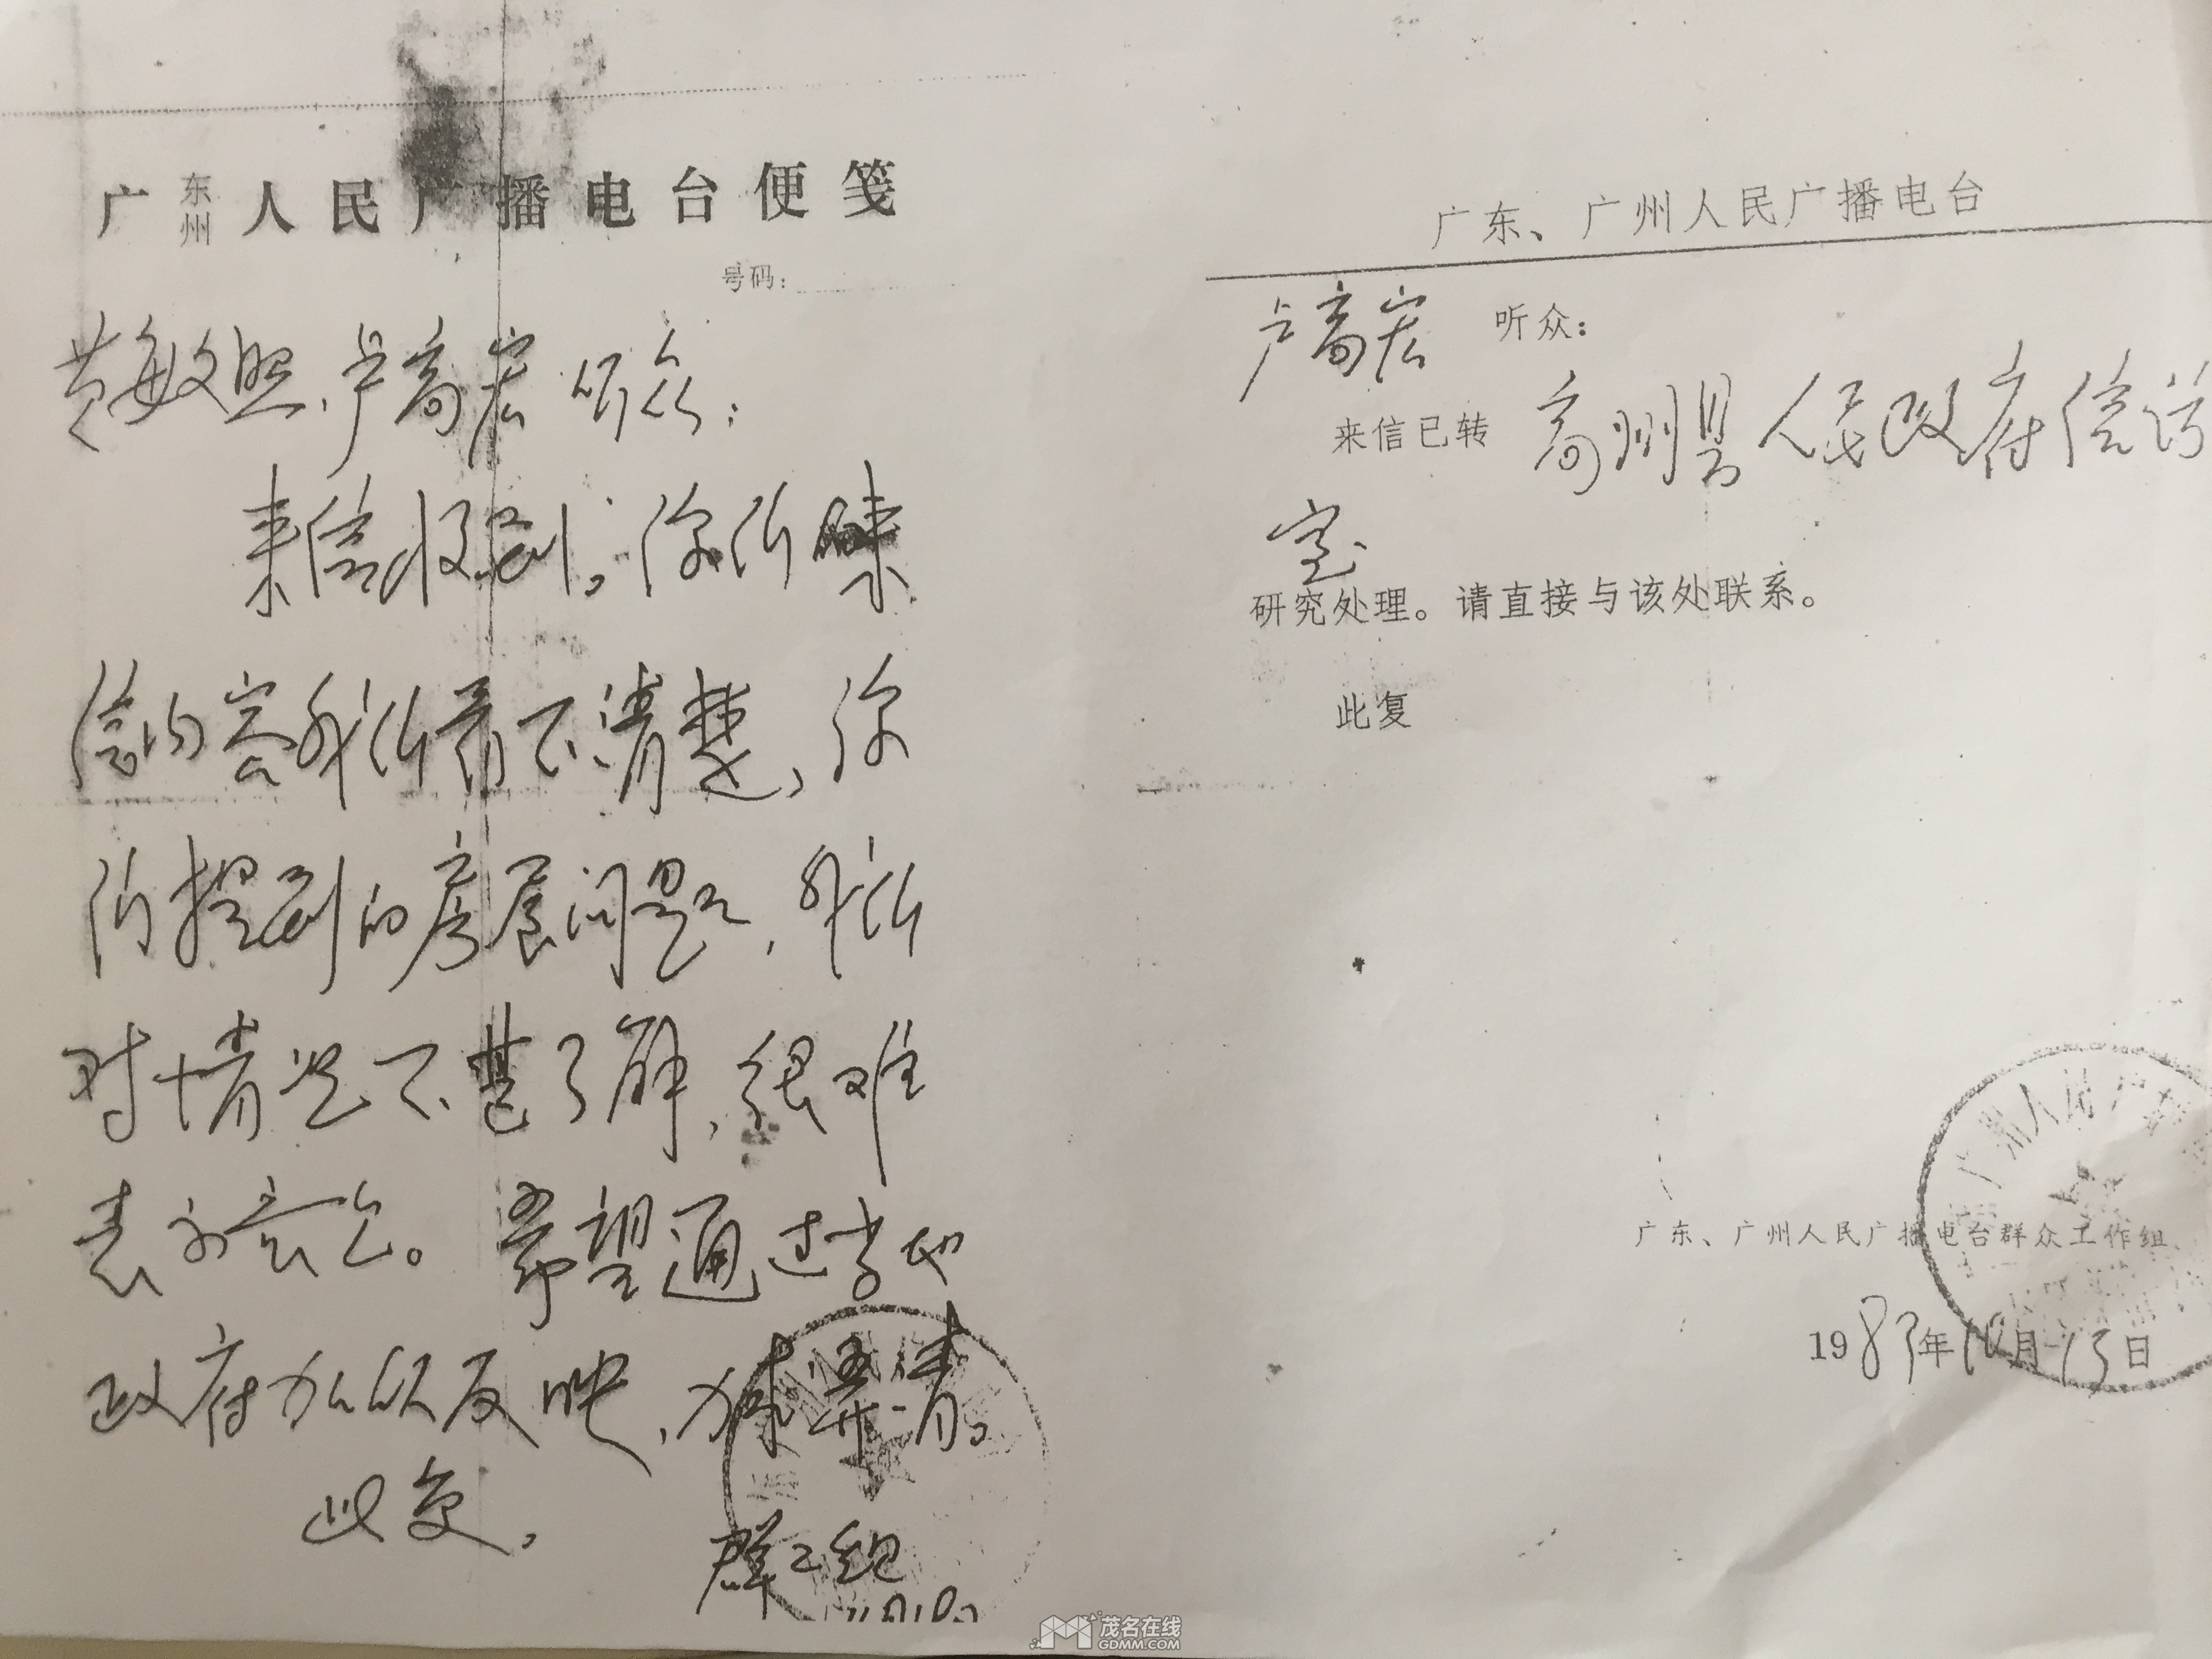 广东州人民广播电台便笺
号码：
黄敏照、卢高宏听众：
来信收到。你所来
信内容我们看不清楚，你
们提到的房屋问题，我们
对情况不甚了解，很难
表示意见。希望通过当地
政府加以反映，
此复，
群工组
广东、广州人民广播电台
卢高宏 听众：
来信已转 高州县人民政府信访
室
研究处理。请直接与该处联系。
此复
广州人民广播
广东、广州人民广播电台群众工作组
1987年10月13日
茂名在线
GDMM.COM